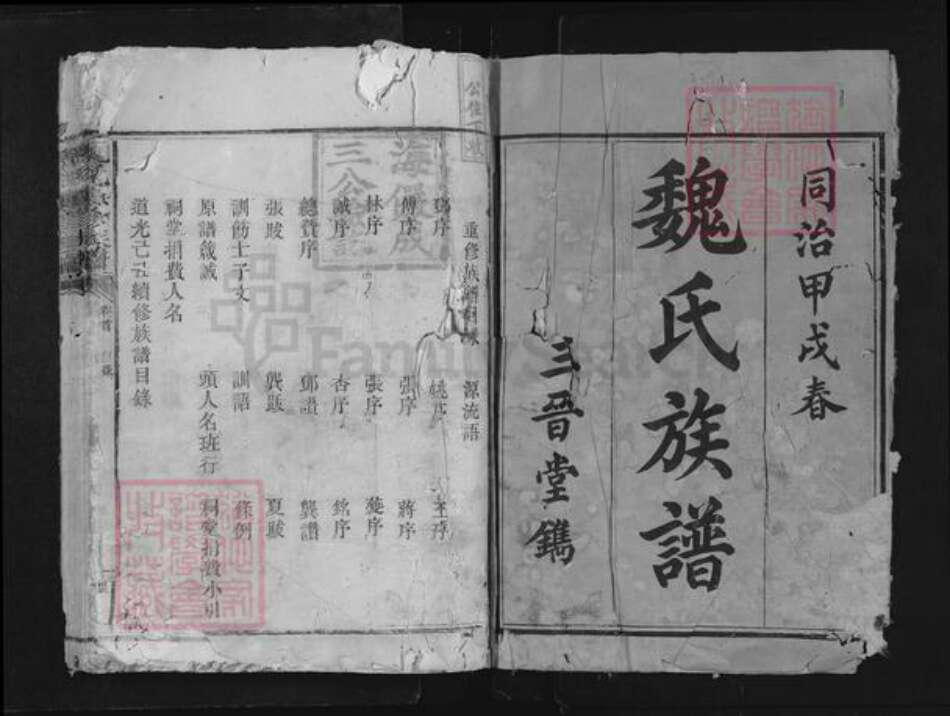 同治甲戌春
魏氏族譜
三晉堂鐫
重修族譜目錄 源流語
序 姚序 序
傅序 張序 蔣序
林序 張序 龔序
誠序 杏序 銘序
總贊序 鄭讚 龔讚
張跋 龔跋 夏跋
訓飭士子文 訓語 條例
原譜箴誡 頭人名班行 祠堂捐費小引
祠堂捐費人名
道光己丑續修族譜目錄
FamilySearch